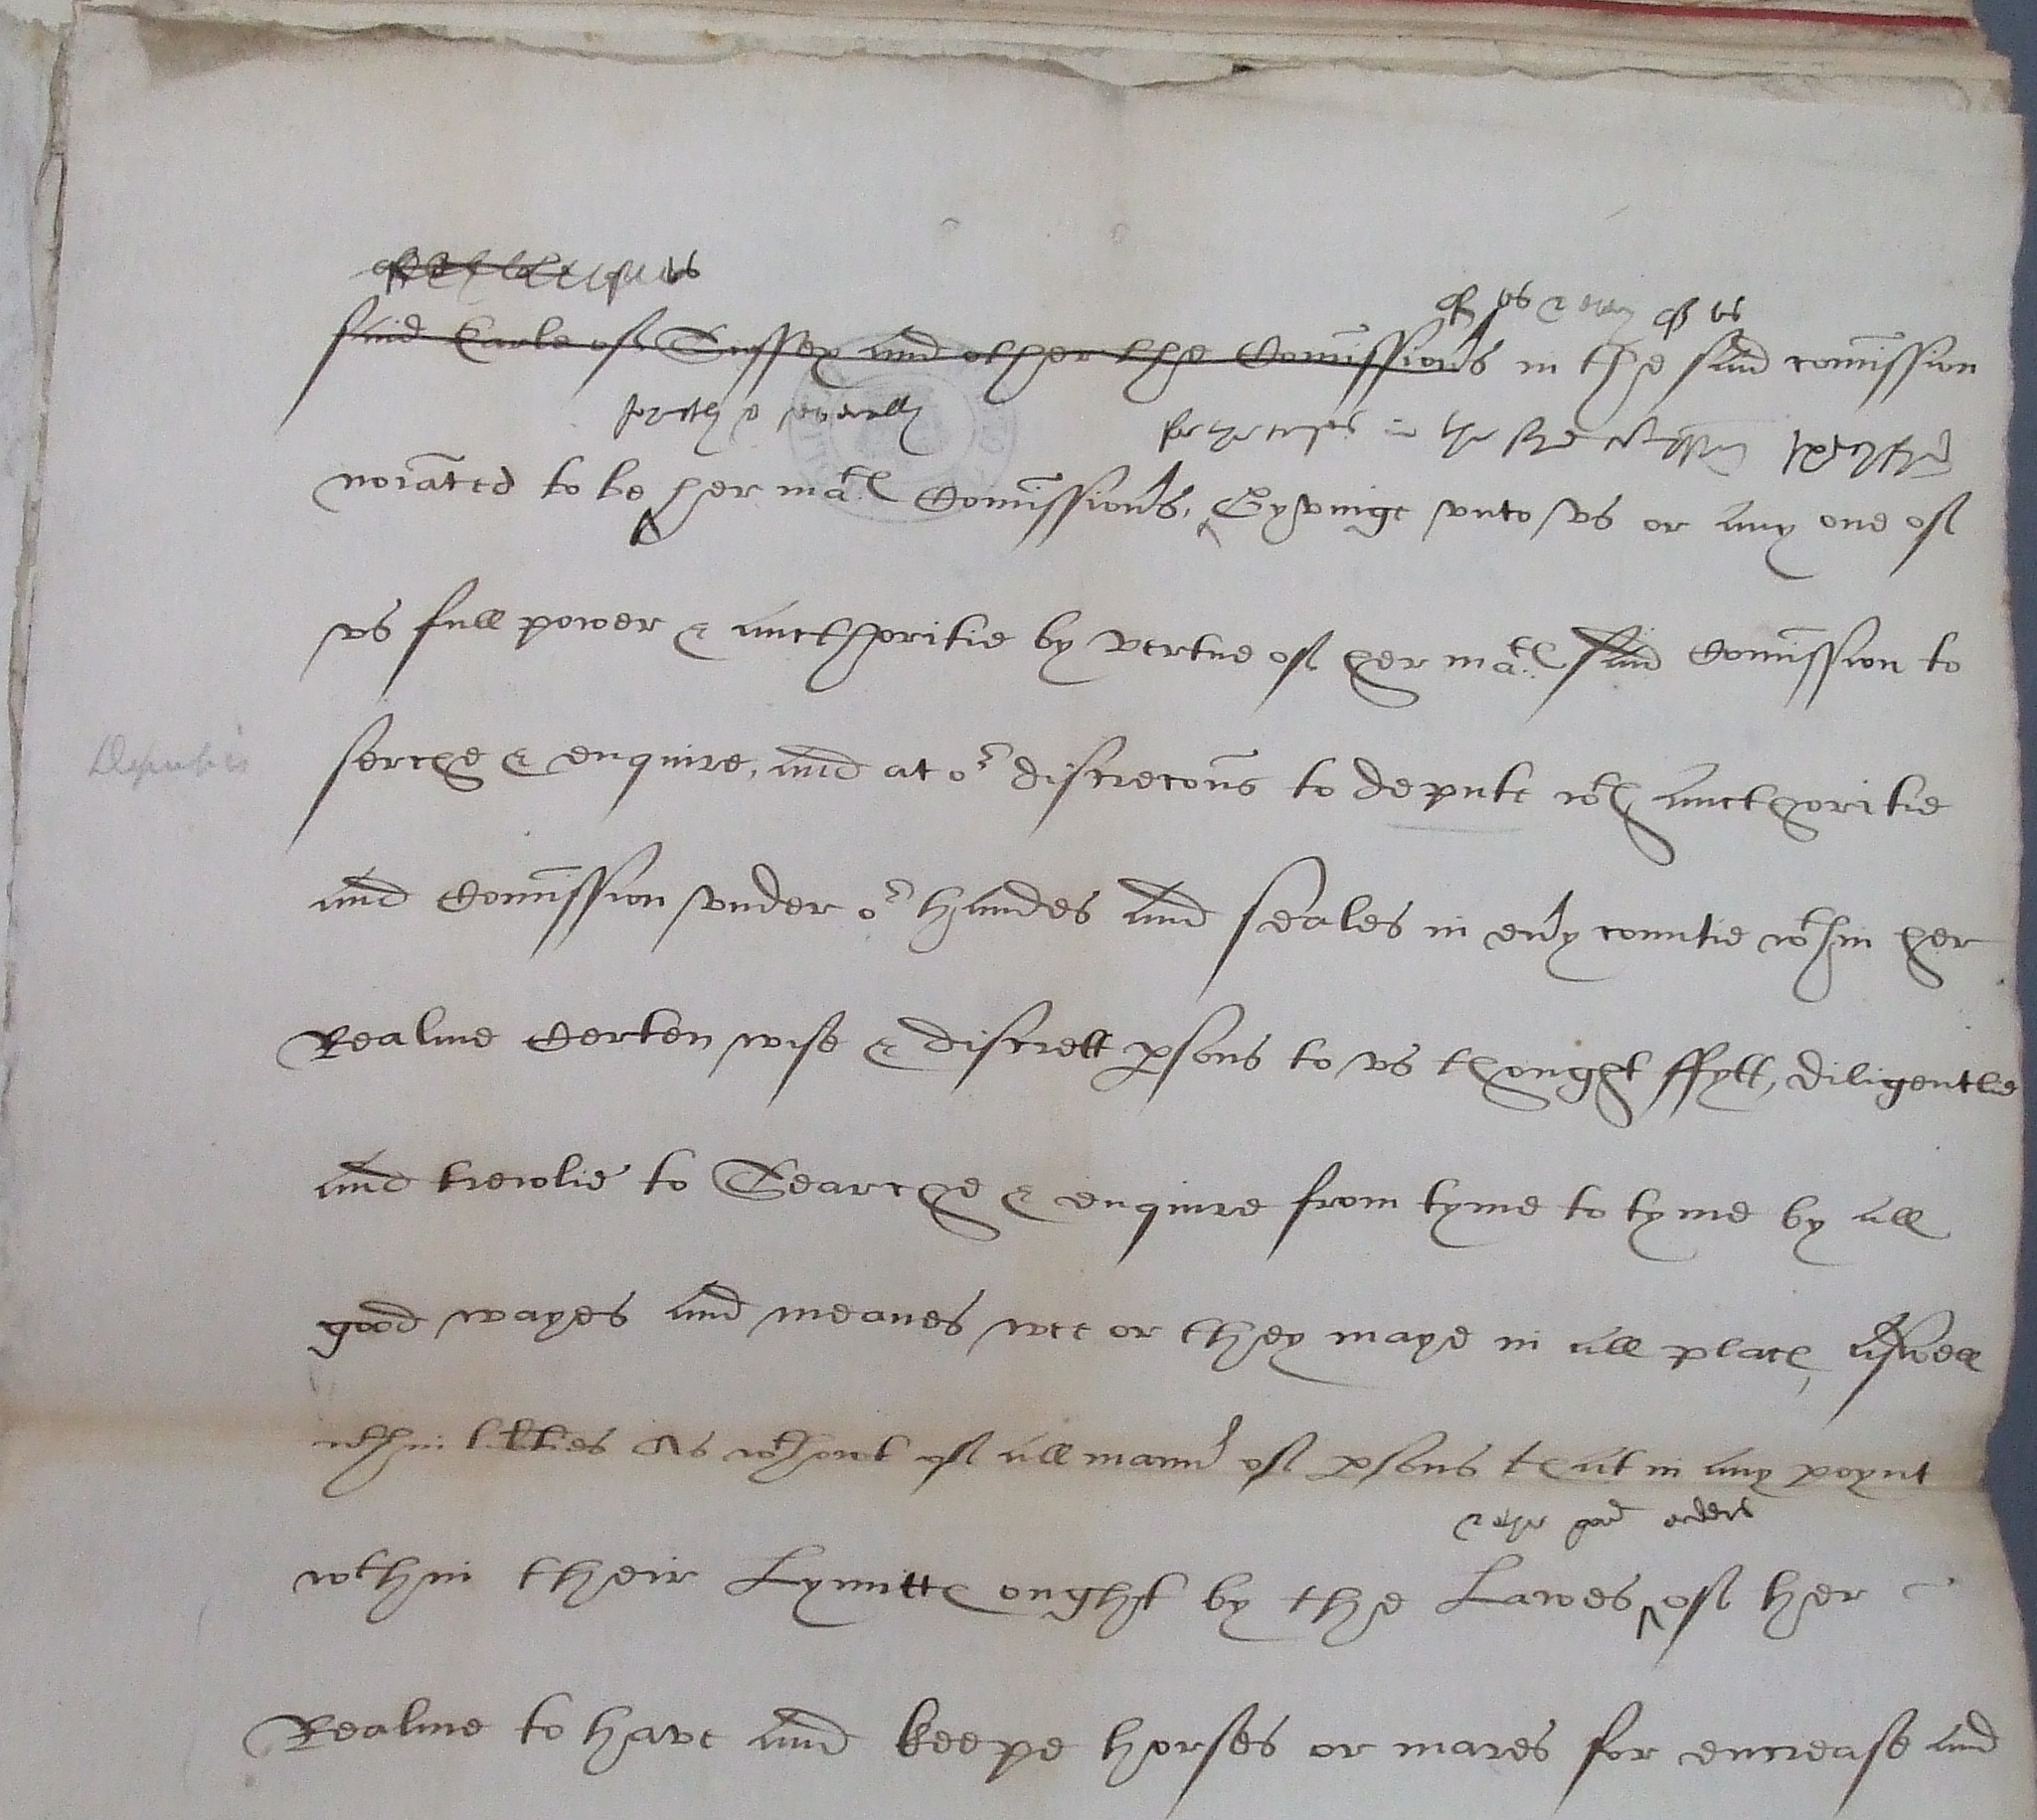 vs
of vs & euery of vs
said Earle of Sussex and other the Comissioners in the said comission
ioyntly & seuerally
for the causes in the said comission
noiated to be her mates Comissioners, Gyvinge vnto vs or any one of
vs full power & aucthoritie by vertue of her mates said Comission to
Deputies
serche & enquire, and at or discrecons to depute wth aucthoritie
and Comission vnder or handes and seales in euy countie wthin her
Realme Certen wise & discrett psons to vs thought ffytt, diligentlie
and trewlie to Searche & enquire from tyme to tyme by all
good wayes and meanes wee or they maye in all places, aswell
wthin libties As wthout of all manner of psons that in any poynt
& other good orders
wthin their Lymittes ought by the Lawes of her
Realme to have and keepe horses or mares for encrease and